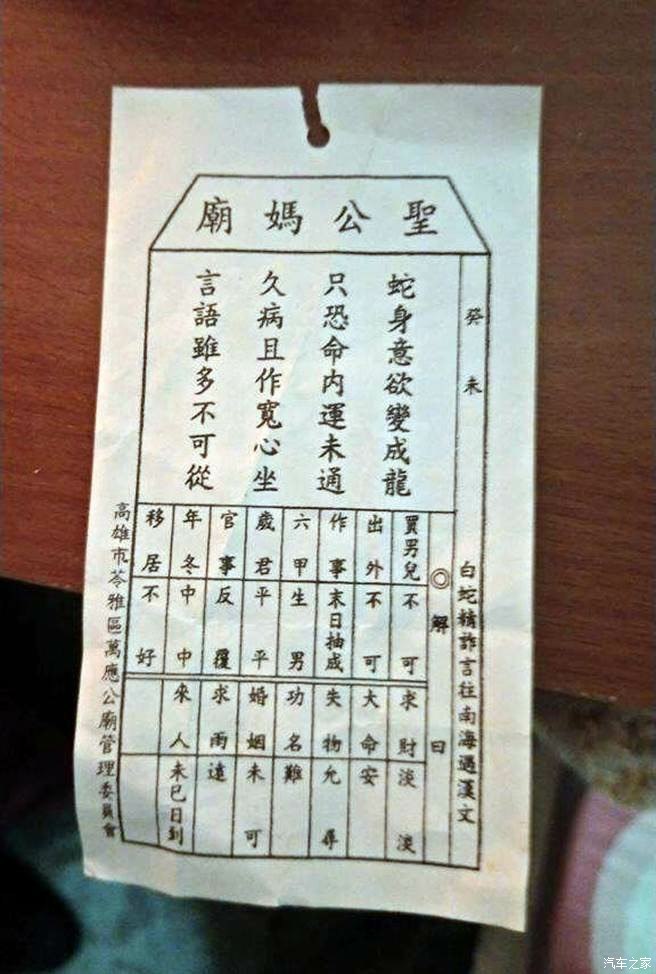 聖公媽廟
癸未
白蛇精詐言往南海遇漢文
蛇身意欲變成龍
只恐命內運未通
久病且作寬心坐
言語雖多不可從
◎解曰
買男兒 不可 求財 淡淡
出外 不可 大命 安
作事 末日抽成 失物 允尋
六甲 生男 功名 難
歲君 平平 婚姻 未可
官事 反覆 求雨 遠
年冬 中中 來人 未巳日到
移居 不好
高雄市苓雅區萬應公廟管理委員會
汽车之家